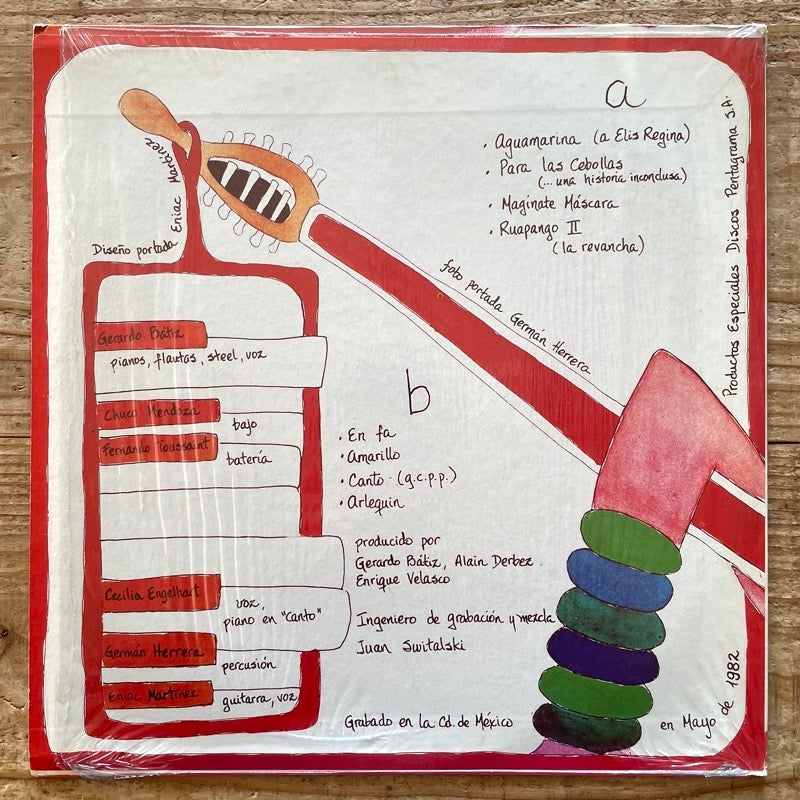 a
. Aguamarina (a Elis Regina)
. Para las Cebollas
(... una historia inconclusa)
. Magínate Máscara
. Ruapango II
(la revancha)
Productos Especiales Discos Pentagrama S.A.
Diseño portada Eniac Martínez
foto portada Germán Herrera
Gerardo Bátiz
pianos, flautas, steel, voz
Chuco Mendoza
bajo
Fernando Toussaint
batería
b
. En fa
. Amarillo
. Canto (g.c.p.p.)
. Arlequin
producido por
Gerardo Bátiz, Alain Derbez.
Enrique Velasco
Cecilia Engelhart
voz,
piano en "Canto"
Ingeniero de grabación y mezcla
Juan Switalski
Germán Herrera
percusión
Eniac Martínez
guitarra, voz
Grabado en la Cd. de México
en Mayo de 1982